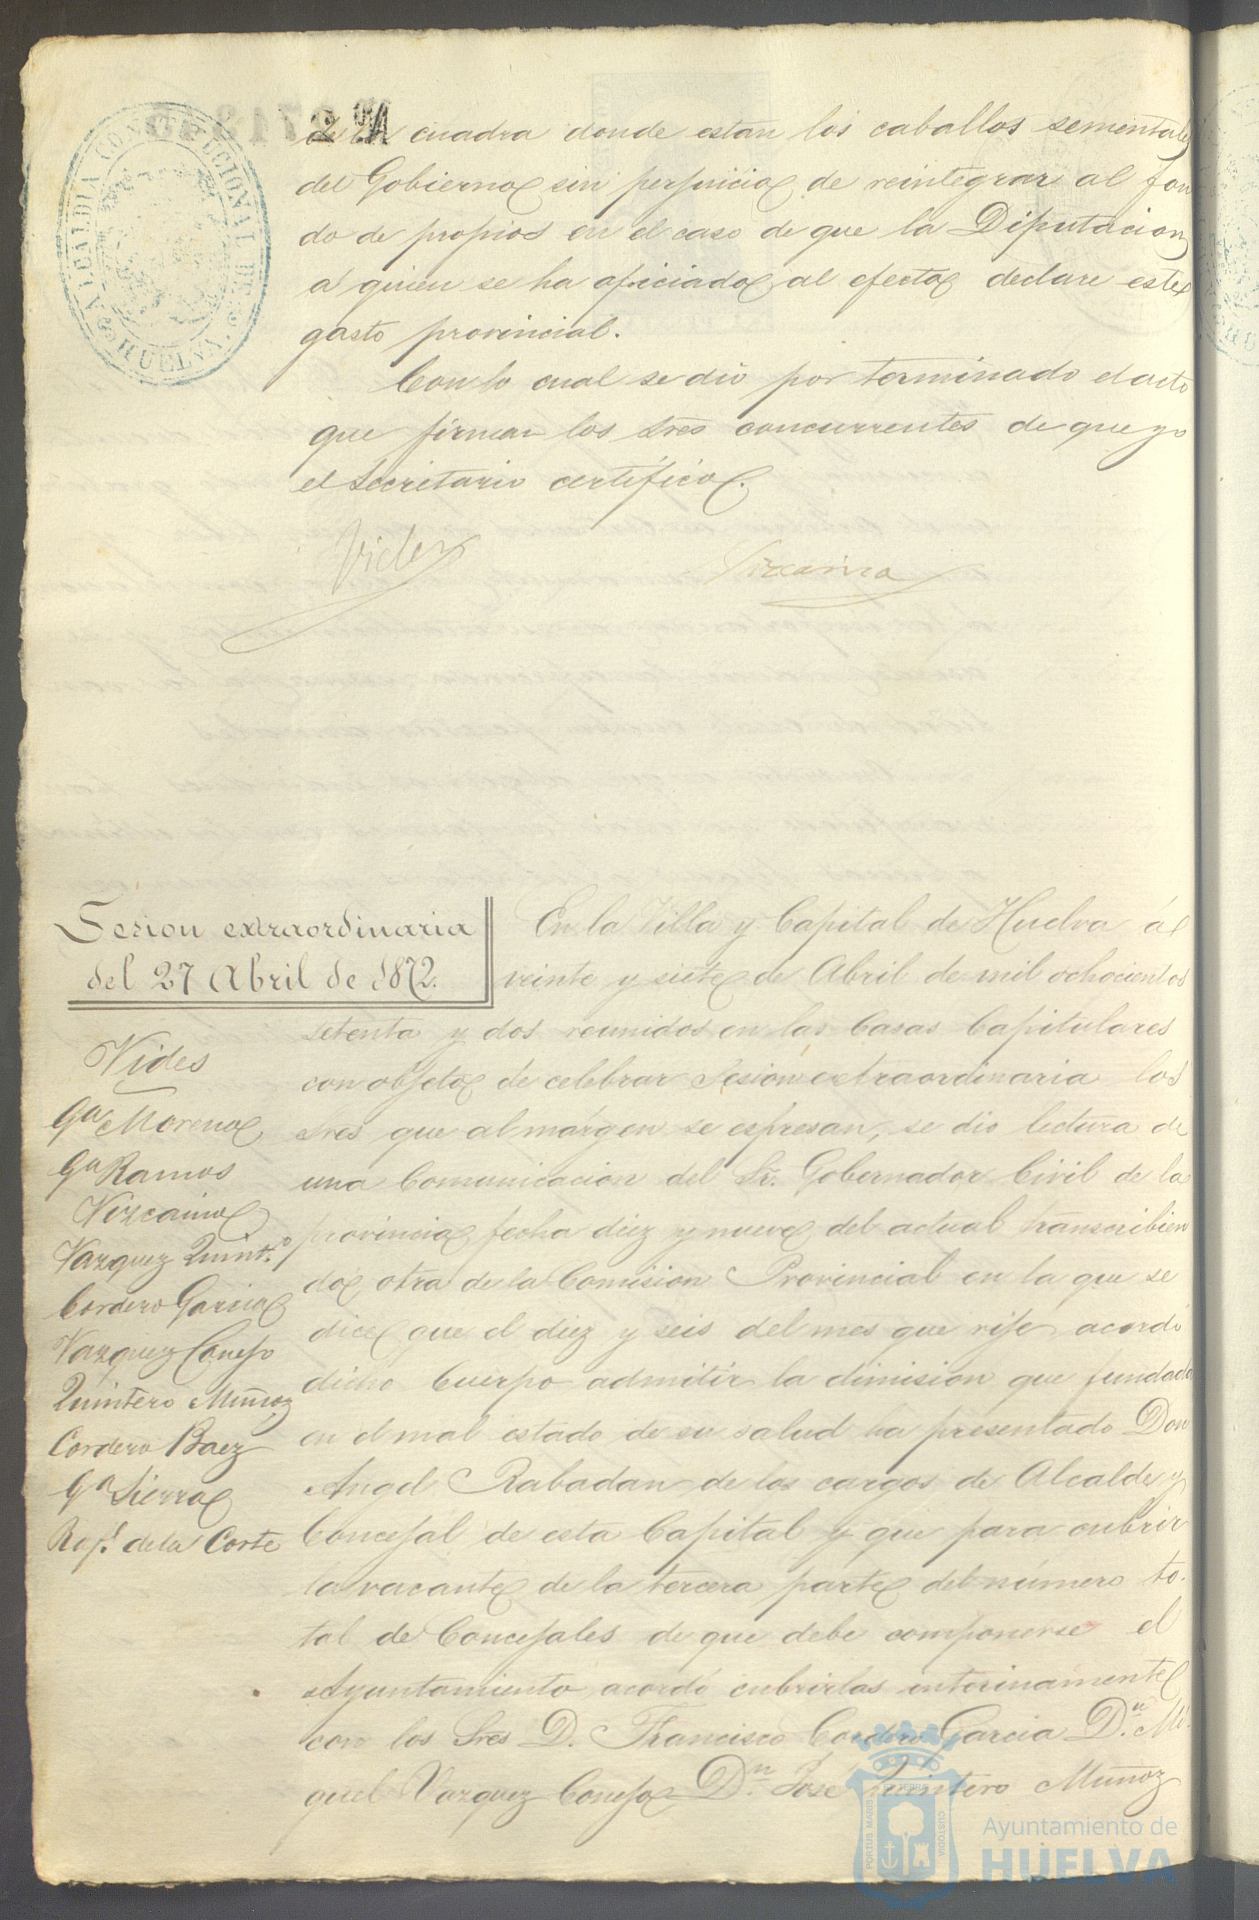 ALCALDIA CONSTITUCIONAL DE HUELVA
de la cuadra donde estan los caballos sementales
del Gobierno sin perjuicio de reintegrar al fon
do de propios en el caso de que la Diputacion
a quien se ha oficiado al efecto declare este
gasto provincial.
Con lo cual se dio por terminado el acto
que firman los Sres concurrentes de que yo
el Secretario certifico.
Vides
Vizcaino
Sesion extraordinaria
del 27 Abril de 1872.
Vides
Ga Moreno
Ga Ramos
Vizcaino
Vazquez Quint.o
Cordero Garcia
Vazquez Conejo
Quintero Muñoz
Cordero Baez
Ga Sierra
Raf.l de la Corte
En la Villa y Capital de Huelva á
veinte y siete de Abril de mil ochocientos
setenta y dos reunidos en las Casas Capitulares
con objeto de celebrar Sesion extraordinaria los
Sres que al márgen se espresan, se dio lectura de
una Comunicacion del Sr. Gobernador Civil de la
provincia fecha diez y nueve del actual transcribien
do otra de la Comision Provincial en la que se
dice que el diez y seis del mes que rije acordó
dicho Cuerpo admitir la dimision que fundada
en el mal estado de su salud ha presentado Don
Angel Rabadan de los cargos de Alcalde y
Concejal de esta Capital y que para cubrir
la vacante de la tercera parte del número to-
tal de Concejales de que debe componerse el
Ayuntamiento acordó cubrirlas interinamente
con los Sres D. Francisco Cordero Garcia D.n Mi
guel Vazquez Conejo D.n José Quintero Muñoz
PORTUS MARIS ET TERRE CUSTODIA
Ayuntamiento de
HUELVA